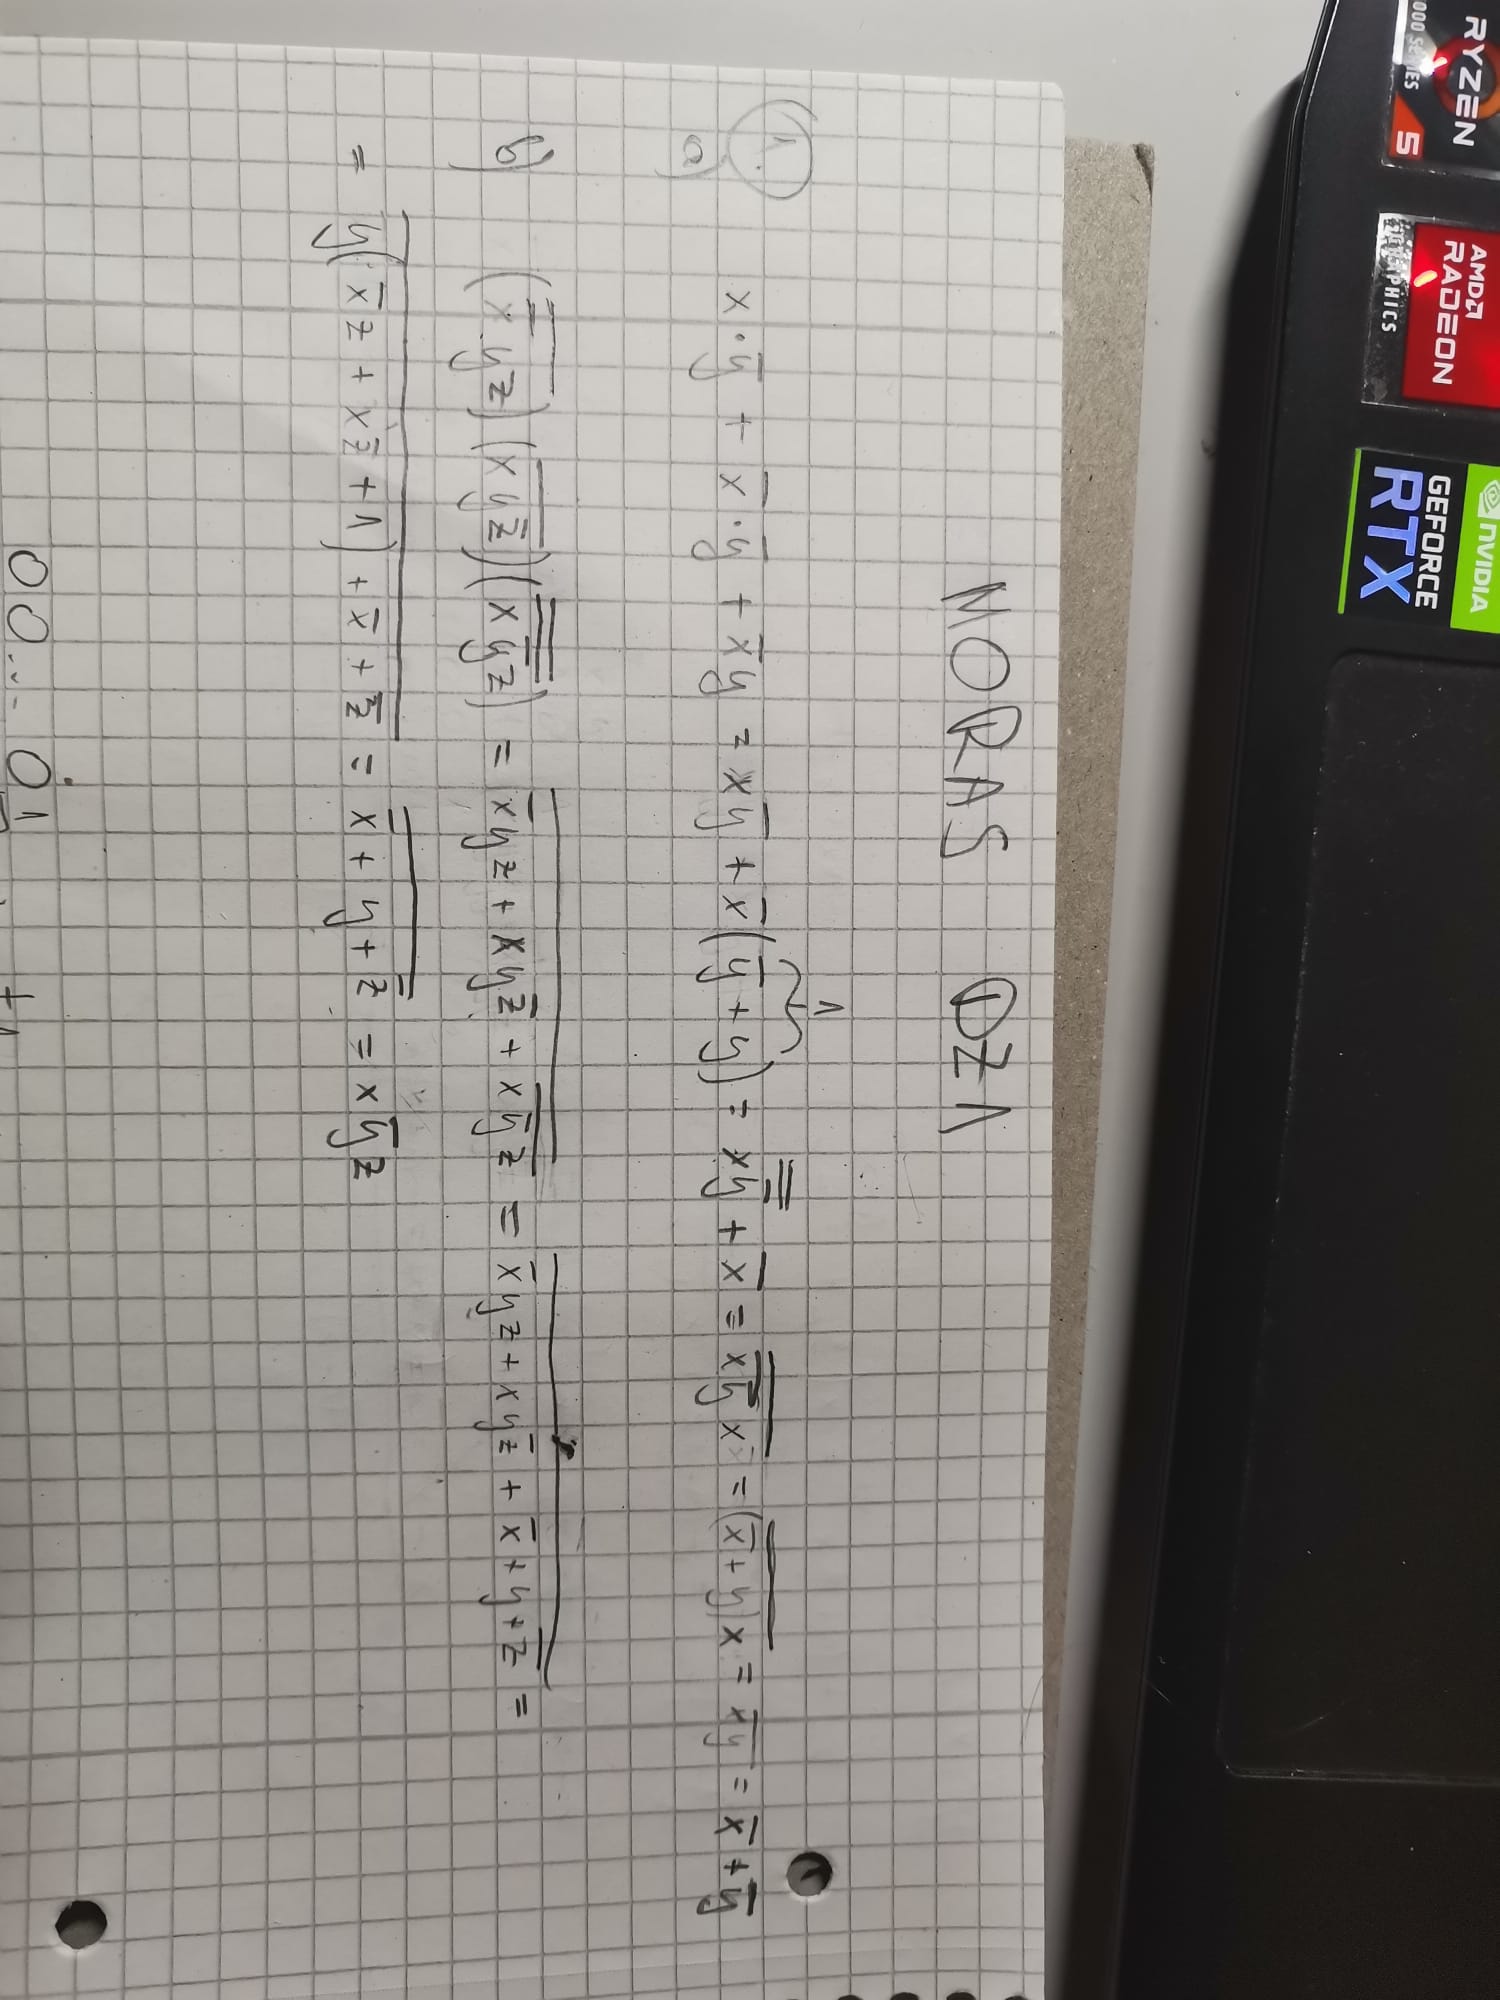 RYZEN
000 SERIES 5
AMD
RADEON
GRAPHICS
NVIDIA
GEFORCE
RTX
MORAS DZ1
1
1.
a) x·y̅ + x̅·y̅ + x̅y = xy̅ + x̅(y̅ + y) = x̿y̿̅ + x̅ = \overline{\overline{xy̅} x} = \overline{(x̅ + y)x} = \overline{xy} = x̅ + y̅
b) (\overline{x̅yz})(\overline{xyz̅})(\overline{\overline{xy̅z}}) = \overline{x̅yz + xyz̅ + \overline{xy̅z}} = \overline{x̅yz + xyz̅ + x̅ + y + z̅} =
= \overline{y(x̅z + xz̅ + 1) + x̅ + z̅} = \overline{x̅ + y + z̅} = xy̅z
00... 01
+1